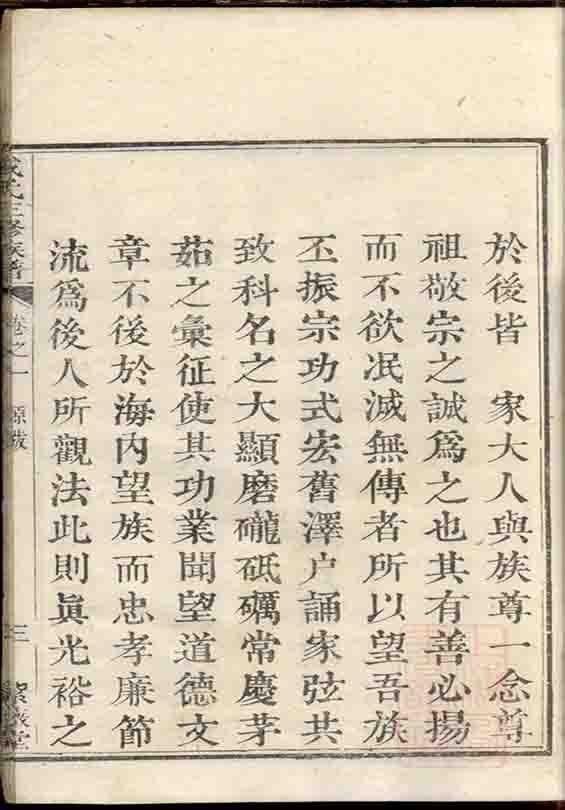 於後皆　家大人與族尊一念尊
祖敬宗之誠爲之也其有善必揚
而不欲冺滅無傳者所以望吾族
丕振宗功式宏舊澤户誦家弦其
致科名之大顯磨礲砥礪常慶茅
茹之彙征使其功業聞望道德文
章不後於海內望族而忠孝廉節
流爲後人所觀法此則眞光裕之
氏三修族譜
卷之一　源
三
堂